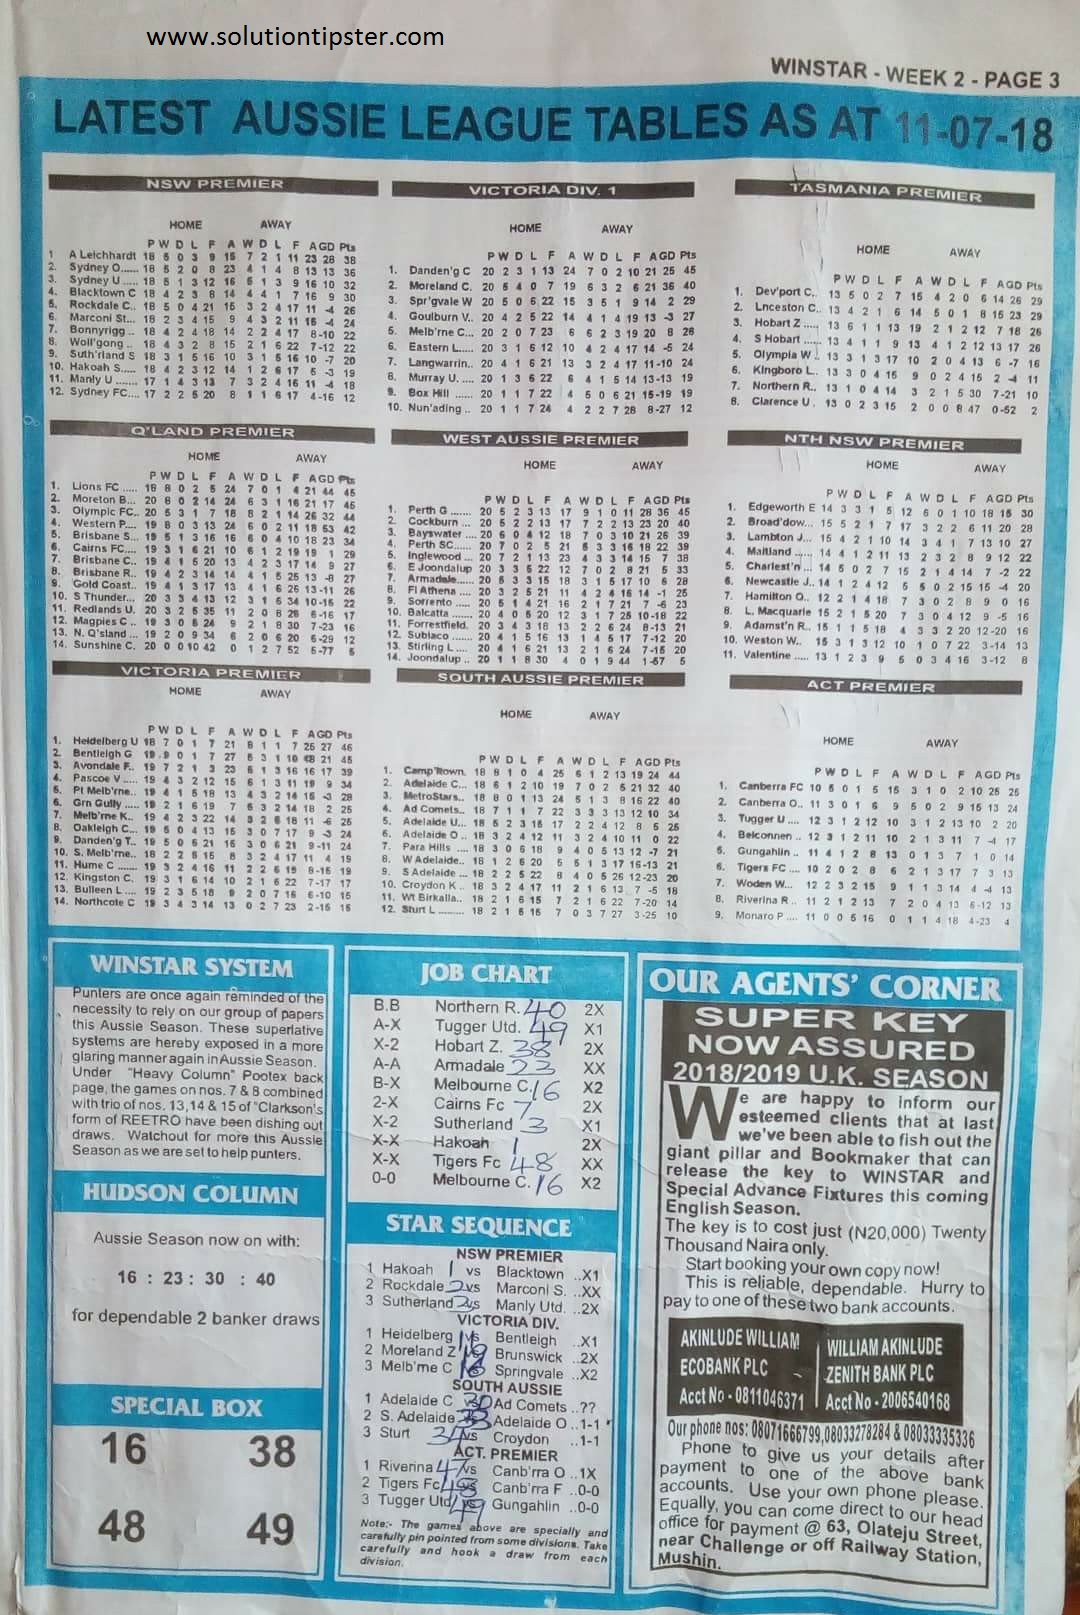 www.solutiontipster.com
WINSTAR - WEEK 2 - PAGE 3
LATEST AUSSIE LEAGUE TABLES AS AT 11-07-18
NSW PREMIER
HOME AWAY
P W D L F A W D L F AGD Pts
1 A Leichhardt 18 5 0 3 9 15 7 2 1 11 23 28 38
2. Sydney O...... 18 5 2 0 8 23 4 1 4 8 13 13 36
3. Sydney U ..... 18 5 1 3 12 16 5 1 3 9 16 10 32
4. Blacktown C 18 4 2 3 8 14 4 4 1 7 16 9 30
5. Rockdale C.. 18 5 0 4 21 15 3 2 4 17 11 -4 26
6. Marconi St... 18 2 3 4 15 9 4 3 2 11 15 -4 24
7. Bonnyrigg .. 18 4 2 4 18 14 2 2 4 17 8-10 22
8. Woll'gong .. 18 4 3 2 8 15 2 1 6 22 7-12 22
9. Suth'rland S 18 3 1 5 16 10 3 1 5 16 10 -7 20
10. Hakoah S..... 18 4 2 3 12 14 1 2 6 17 5 -3 19
11. Manly U ....... 17 1 4 3 13 7 3 2 4 16 11 -4 18
12. Sydney FC.... 17 2 2 5 20 8 1 1 6 17 4-16 12
VICTORIA DIV. 1
HOME AWAY
P W D L F A W D L F AGD Pts
1. Danden'g C 20 2 3 1 13 24 7 0 2 10 21 25 45
2. Moreland C. 20 5 4 0 7 19 6 3 2 6 21 36 40
3. Spr'gvale W 20 5 0 6 22 15 3 5 1 9 14 2 29
4. Goulburn V.. 20 4 2 5 22 14 4 1 4 19 13 -3 27
5. Melb'rne C... 20 2 0 7 23 6 6 2 3 19 20 8 26
6. Eastern L..... 20 3 1 6 12 10 4 2 4 17 14 -5 24
7. Langwarrin.. 20 4 1 6 21 13 3 2 4 17 11-10 24
8. Murray U. .... 20 1 3 6 22 6 4 1 5 14 13-13 19
9. Box Hill ...... 20 1 1 7 22 4 5 0 6 21 15-19 19
10. Nun'ading .. 20 1 1 7 24 4 2 2 7 28 8-27 12
TASMANIA PREMIER
HOME AWAY
P W D L F A W D L F AGD Pts
1. Dev'port C.. 13 5 0 2 7 15 4 2 0 6 14 26 29
2. Lnceston C.. 13 4 2 1 6 14 5 0 1 8 15 23 29
3. Hobart Z ..... 13 6 1 1 13 19 2 1 2 12 7 18 26
4. S Hobart ..... 13 4 1 1 9 13 4 1 2 12 13 17 26
5. Olympia W .. 13 3 1 3 17 10 2 0 4 13 6 -7 16
6. Kingboro L.. 13 3 0 4 15 9 0 2 4 15 2 -4 11
7. Northern R.. 13 1 0 4 14 3 2 1 5 30 7-21 10
8. Clarence U . 13 0 2 3 15 2 0 0 8 47 0-52 2
Q'LAND PREMIER
HOME AWAY
P W D L F A W D L F AGD Pts
1. Lions FC ..... 18 8 0 2 5 24 7 0 1 4 21 44 45
2. Moreton B... 20 8 0 2 14 24 6 3 1 16 21 17 45
3. Olympic FC.. 20 5 3 1 7 18 8 2 1 14 26 32 44
4. Western P.... 19 8 0 3 13 24 6 0 2 11 18 53 42
5. Brisbane S... 19 5 1 3 16 16 6 0 4 10 18 23 34
6. Cairns FC.... 19 3 1 6 21 10 6 1 2 19 19 1 29
7. Brisbane C... 19 4 1 5 20 13 4 2 3 17 14 9 27
8. Brisbane R.. 19 4 2 3 14 14 4 1 5 25 13 -8 27
9. Gold Coast.. 19 4 1 3 17 13 4 1 6 25 13-11 26
10. S Thunder... 20 3 3 4 13 12 3 1 6 34 10-15 22
11. Redlands U. 20 3 2 5 35 11 2 0 8 25 6-16 17
12. Magpies C .. 19 3 0 6 24 9 2 1 8 30 7-23 16
13. N. Q'sland ... 19 2 0 9 34 6 2 0 6 20 6-29 12
14. Sunshine C. 20 0 0 10 42 0 1 2 7 52 5-77 5
WEST AUSSIE PREMIER
HOME AWAY
P W D L F A W D L F AGD Pts
1. Perth G ....... 20 5 2 3 13 17 9 1 0 11 28 36 45
2. Cockburn ... 20 5 2 2 13 17 7 2 2 13 23 20 40
3. Bayswater .... 20 6 0 4 12 18 7 0 3 10 21 26 39
4. Perth SC..... 20 7 0 2 5 21 5 3 3 16 18 22 39
5. Inglewood .. 20 7 2 1 13 23 4 3 3 14 15 7 38
6. E Joondalup 20 3 3 5 22 12 7 0 2 8 21 5 33
7. Armadale..... 20 5 3 3 15 18 3 1 5 17 10 6 28
8. Fl Athena .... 20 3 2 5 21 11 4 2 4 16 14 -1 25
9. Sorrento ..... 20 5 1 4 21 16 2 1 7 21 7 -6 23
10. Balcatta ...... 20 4 0 5 20 12 3 1 7 25 10-18 22
11. Forrestfield. 20 3 4 3 18 13 2 2 6 24 8-13 21
12. Subiaco ...... 20 4 1 5 16 13 1 4 5 17 7-12 20
13. Stirling L .... 20 4 1 6 21 13 2 1 6 24 7-15 20
14. Joondalup .. 20 1 1 8 30 4 0 1 9 44 1-57 5
NTH NSW PREMIER
HOME AWAY
P W D L F A W D L F AGD Pts
1. Edgeworth E 14 3 3 1 5 12 6 0 1 10 18 15 30
2. Broad'dow... 15 5 2 1 7 17 3 2 2 6 11 20 28
3. Lambton J... 15 4 2 1 10 14 3 4 1 7 13 10 27
4. Maitland ..... 14 4 1 2 11 13 2 3 2 8 9 12 22
5. Charlest'n ... 14 5 0 2 7 15 2 1 4 14 7 -2 22
6. Newcastle J.. 14 1 2 4 12 5 5 0 2 15 15 -4 20
7. Hamilton O.. 12 2 1 4 18 7 3 0 2 8 9 0 16
8. L. Macquarie 15 2 1 5 20 7 3 0 4 12 9 -5 16
9. Adamst'n R.. 15 1 1 5 18 4 3 3 2 20 12-20 16
10. Weston W... 15 3 1 3 12 10 1 0 7 22 3-14 13
11. Valentine ..... 13 1 2 3 9 5 0 3 4 16 3-12 8
VICTORIA PREMIER
HOME AWAY
P W D L F A W D L F AGD Pts
1. Heidelberg U 18 7 0 1 7 21 8 1 1 7 25 27 46
2. Bentleigh G 19 9 0 1 7 27 5 3 1 10 21 45
3. Avondale F.. 19 7 2 1 3 23 5 1 3 16 16 17 39
4. Pascoe V ..... 19 4 3 2 12 15 6 1 3 11 19 9 34
5. Pt Melb'rne.. 19 4 1 5 18 13 4 3 2 14 15 -3 28
6. Grn Gully .... 19 2 1 6 19 7 5 3 2 14 18 2 25
7. Melb'rne K.. 19 4 2 3 22 14 3 2 5 18 11 -6 25
8. Oakleigh C... 19 5 0 4 13 15 3 0 7 17 9 -3 24
9. Danden'g T.. 19 5 0 6 21 16 3 0 6 21 9-11 24
10. S. Melb'rne.. 19 2 2 6 15 8 3 2 4 17 11 4 19
11. Hume C ...... 19 3 2 4 16 11 2 2 6 19 8-15 19
12. Kingston C. 19 3 1 6 14 10 2 1 6 22 7-17 17
13. Bulleen L .... 19 2 3 5 18 9 2 0 7 16 6-10 15
14. Northcote C 19 3 4 3 14 13 0 2 7 23 2-15 15
SOUTH AUSSIE PREMIER
HOME AWAY
P W D L F A W D L F AGD Pts
1. Camp'ltown. 18 8 1 0 4 25 6 1 2 13 19 24 44
2. Adelaide C... 18 6 1 2 10 19 7 0 2 5 21 32 40
3. MetroStars.. 18 8 0 1 13 24 5 1 3 8 16 22 40
4. Ad Comets.. 18 7 1 1 7 22 3 3 3 13 12 10 34
5. Adelaide U... 18 5 2 3 16 17 2 2 4 12 8 5 25
6. Adelaide O .. 18 3 2 4 12 11 3 2 4 10 11 0 22
7. Para Hills .... 18 3 0 6 18 9 4 0 5 13 12 -7 21
8. W Adelaide.. 18 1 2 6 20 5 5 1 3 17 16-13 21
9. S Adelaide ... 18 2 2 5 22 8 4 0 5 26 12-23 20
10. Croydon K .. 18 3 2 4 17 11 2 1 6 13 7 -5 18
11. Wt Birkalla.. 18 2 1 6 15 7 2 1 6 22 7-20 14
12. Sturt L ........ 18 2 1 5 16 7 0 3 7 27 3-25 10
ACT PREMIER
HOME AWAY
P W D L F A W D L F AGD Pts
1. Canberra FC 10 5 0 1 5 15 3 1 0 2 10 25 25
2. Canberra O.. 11 3 0 1 6 9 5 0 2 9 15 13 24
3. Tugger U .... 12 3 1 2 12 10 3 1 2 13 10 2 20
4. Belconnen .. 12 3 1 2 11 10 2 1 3 11 7 -4 17
5. Gungahlin .. 11 4 1 2 8 13 0 1 3 7 1 0 14
6. Tigers FC .... 10 2 0 2 8 6 2 1 3 17 7 3 13
7. Woden W... 12 2 3 2 15 9 1 1 3 14 4 -4 13
8. Riverina R .. 11 2 1 2 13 7 2 0 4 13 6-12 13
9. Monaro P .... 11 0 0 5 16 0 1 1 4 18 4-23 4
WINSTAR SYSTEM
Punters are once again reminded of the
necessity to rely on our group of papers
this Aussie Season. These superlative
systems are hereby exposed in a more
glaring manner again in Aussie Season.
Under "Heavy Column" Pootex back
page, the games on nos. 7 & 8 combined
with trio of nos. 13,14 & 15 of "Clarkson's
form of REETRO have been dishing out
draws. Watchout for more this Aussie
Season as we are set to help punters.
HUDSON COLUMN
Aussie Season now on with:
16 : 23 : 30 : 40
for dependable 2 banker draws
SPECIAL BOX
16 38
48 49
JOB CHART
B.B Northern R. 40 2X
A-X Tugger Utd. 49 X1
X-2 Hobart Z. 38 2X
A-A Armadale 23 XX
B-X Melbourne C. 16 X2
2-X Cairns Fc 7 2X
X-2 Sutherland 3 X1
X-X Hakoah 1 2X
X-X Tigers Fc 48 XX
0-0 Melbourne C. 16 X2
STAR SEQUENCE
NSW PREMIER
1 Hakoah 1 vs Blacktown ..X1
2 Rockdale 2 vs Marconi S. ..XX
3 Sutherland 3 vs Manly Utd. ..2X
VICTORIA DIV.
1 Heidelberg vs Bentleigh ..X1
2 Moreland Z vs Brunswick ..2X
3 Melb'me C 16 Springvale ..X2
SOUTH AUSSIE
1 Adelaide C 30 Ad Comets ..??
2 S. Adelaide 33 Adelaide O ..1-1
3 Sturt 34 vs Croydon ..1-1
ACT. PREMIER
1 Riverina 47 vs Canb'rra O ..1X
2 Tigers Fc 48 vs Canb'rra F ..0-0
3 Tugger Utd 49 vs Gungahlin ..0-0
Note:- The games above are specially and
carefully pin pointed from some divisions. Take
carefully and hook a draw from each
division.
OUR AGENTS' CORNER
SUPER KEY
NOW ASSURED
2018/2019 U.K. SEASON
We are happy to inform our
esteemed clients that at last
we've been able to fish out the
giant pillar and Bookmaker that can
release the key to WINSTAR and
Special Advance Fixtures this coming
English Season.
The key is to cost just (N20,000) Twenty
Thousand Naira only.
Start booking your own copy now!
This is reliable, dependable. Hurry to
pay to one of these two bank accounts.
AKINLUDE WILLIAM
ECOBANK PLC
Acct No - 0811046371
WILLIAM AKINLUDE
ZENITH BANK PLC
Acct No - 2006540168
Our phone nos: 08071666799,08033278284 & 08033335336
Phone to give us your details after
payment to one of the above bank
accounts. Use your own phone please.
Equally, you can come direct to our head
office for payment @ 63, Olateju Street,
near Challenge or off Railway Station,
Mushin.